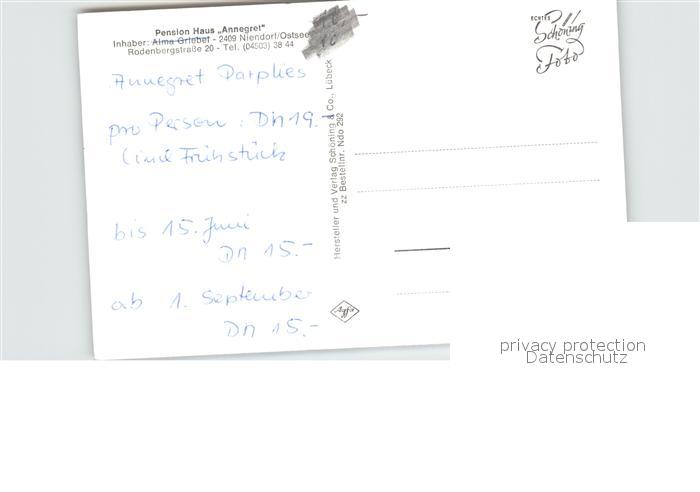 Pension Haus „Annegret"
Inhaber: Alma Griebel - 2409 Niendorf/Ostsee
Rodenbergstraße 20 - Tel. (04503) 38 44
Annegret Darplies
pro Person : DM 19.-
(incl Frühstück
bis 15. Juni
DM 15.-
ab 1. September
DM 15.-
Hersteller und Verlag Schöning & Co., Lübeck
zz Bestellnr. Ndo 292
Agfa
ECHTES
Schöning
Foto
privacy protection
Datenschutz